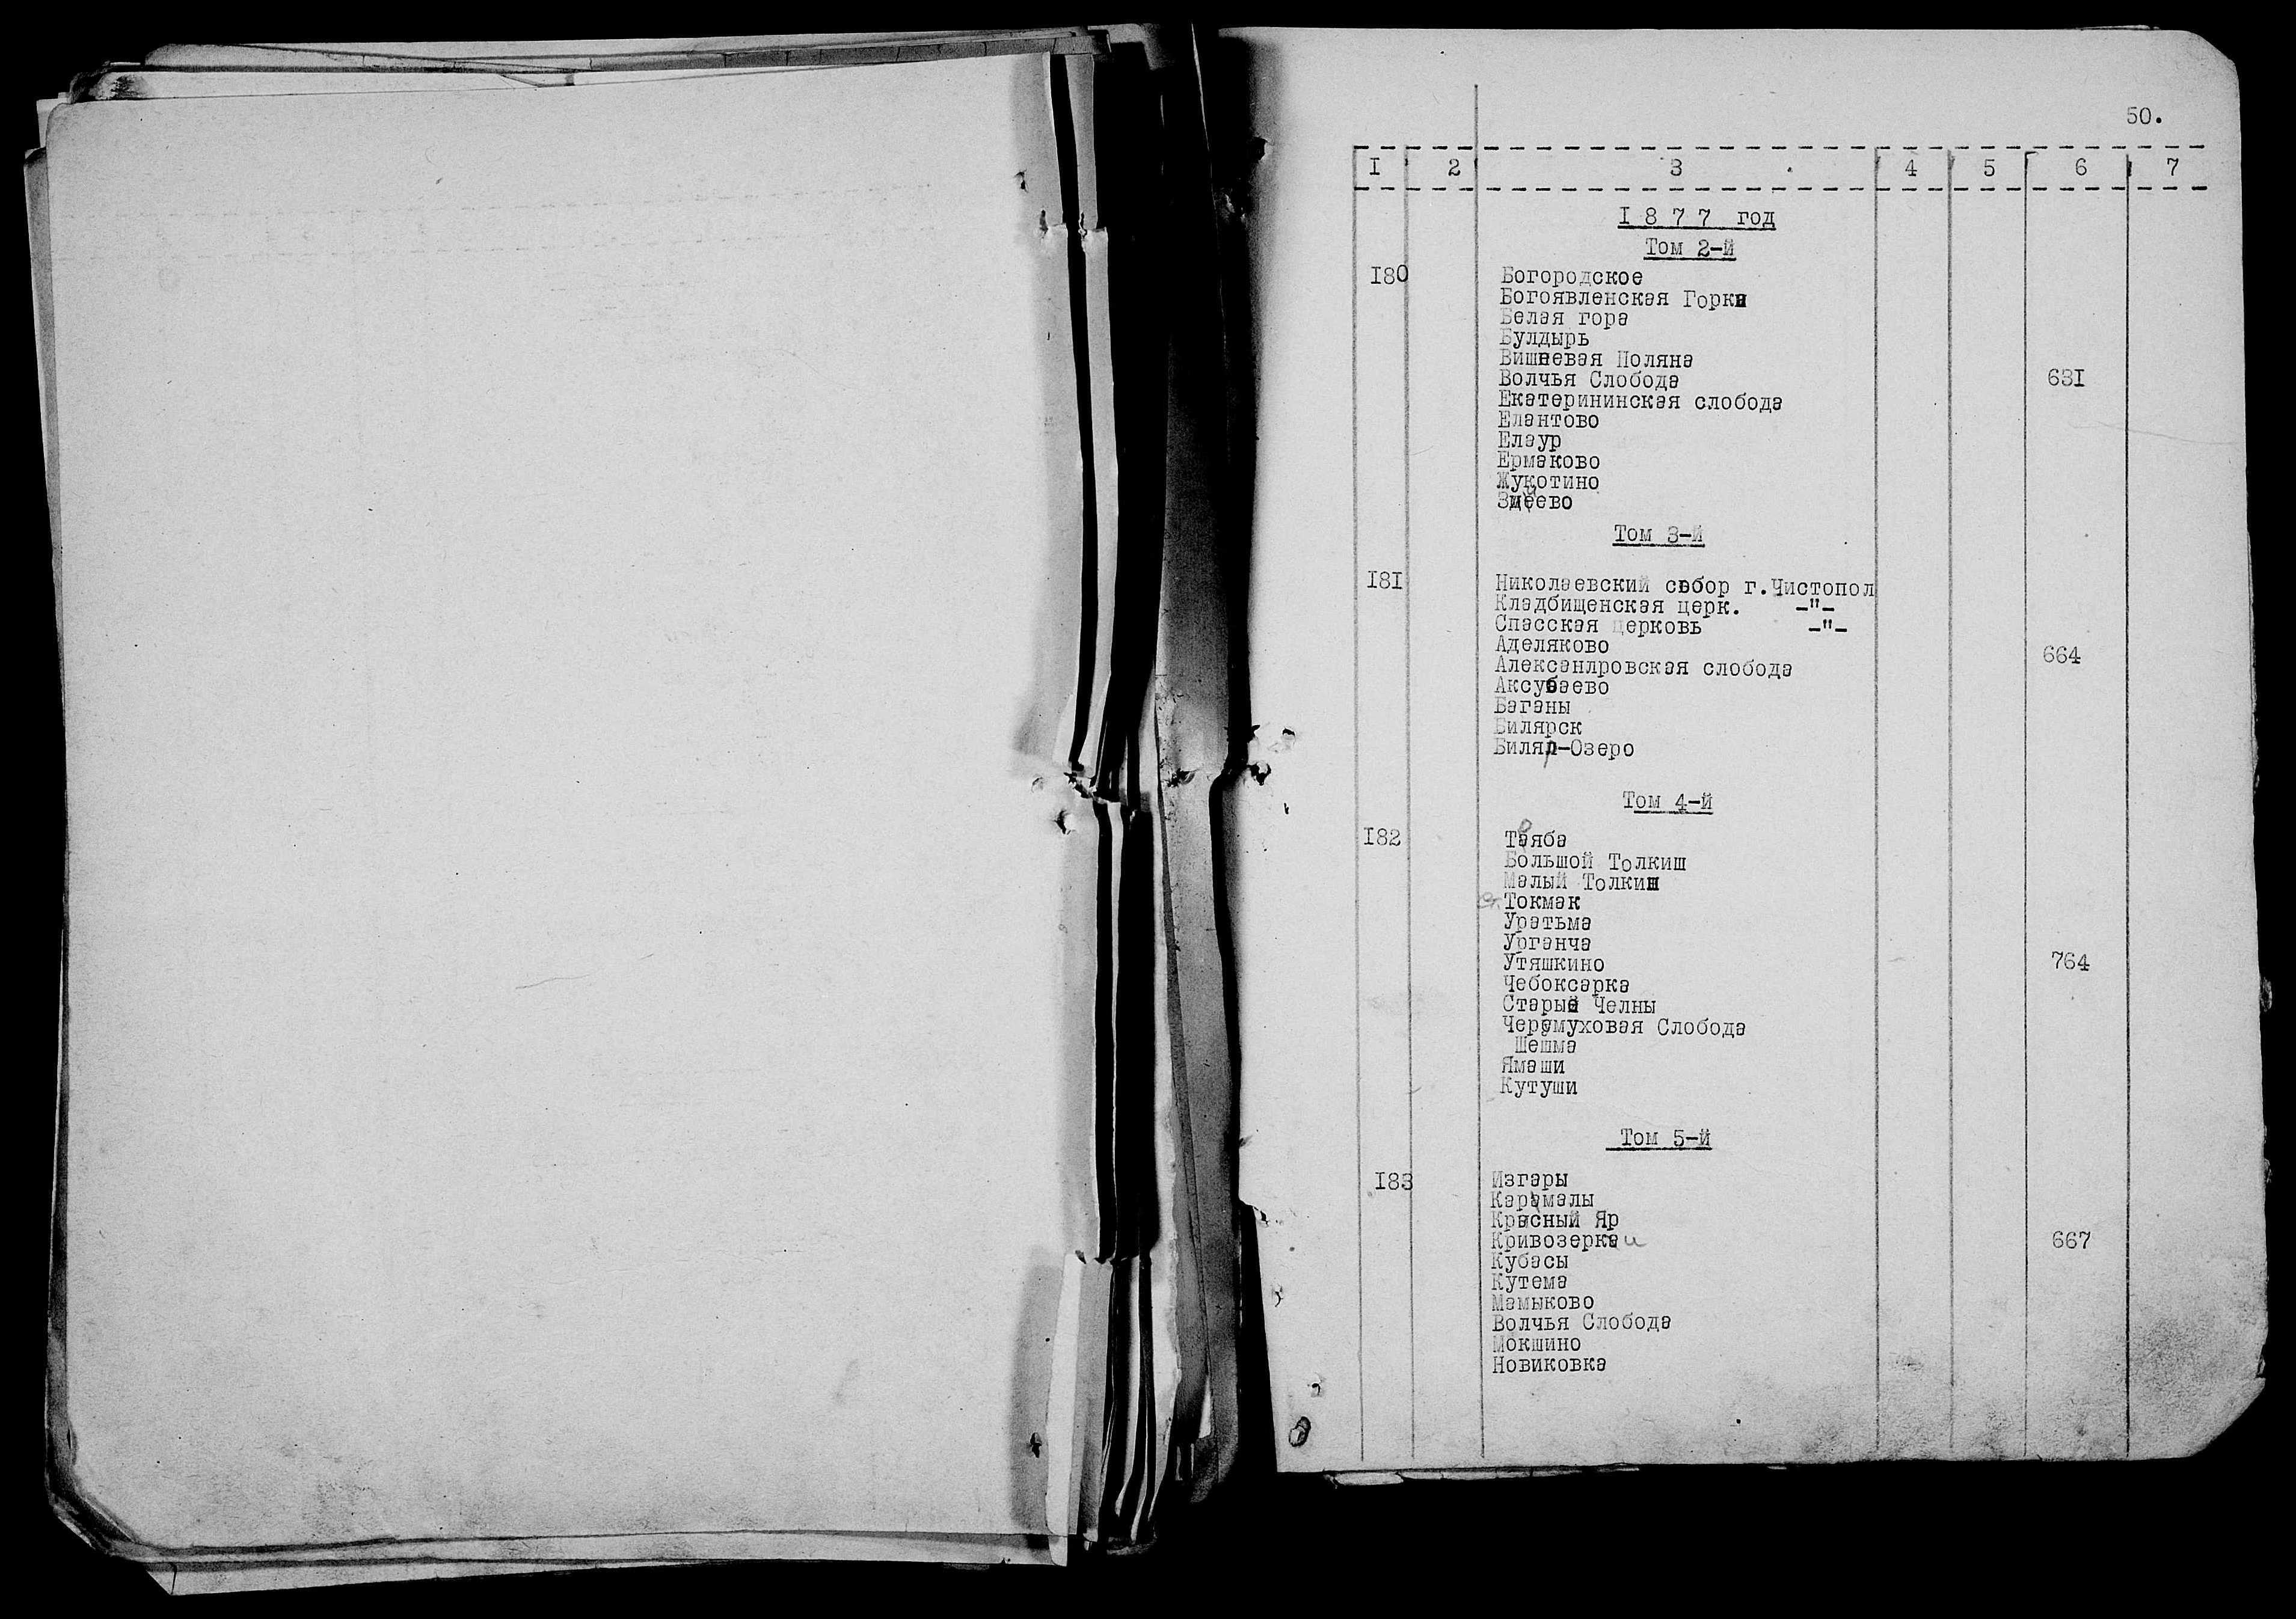 50.
I 2 3 4 5 6 7
I 8 7 7 год
Том 2-й
I80 Богородское
Богоявленская Горка
Белая гора
Булдырь
Вишневая Поляна
Волчья Слобода 631
Екатерининская слобода
Елантово
Елаур
Ермаково
Жукотино
Змеево
Том 3-й
I8I Николаевский собор г.Чистопол
Кладбищенская церк. -"-
Спасская церковь -"-
Аделяково 664
Александровская слобода
Аксубаево
Баганы
Билярск
Биляр-Озеро
Том 4-й
I82 Тояба
Большой Толкиш
Малый Толкиш
Токмак
Уратьма
Урганча
Утяшкино 764
Чебоксарка
Старые Челны
Черемуховая Слобода
Шешма
Ямаши
Кутуши
Том 5-й
I83 Изгары
Карамалы
Красный Яр
Кривозерки 667
Кубасы
Кутема
Мамыково
Волчья Слобода
Мокшино
Новиковка